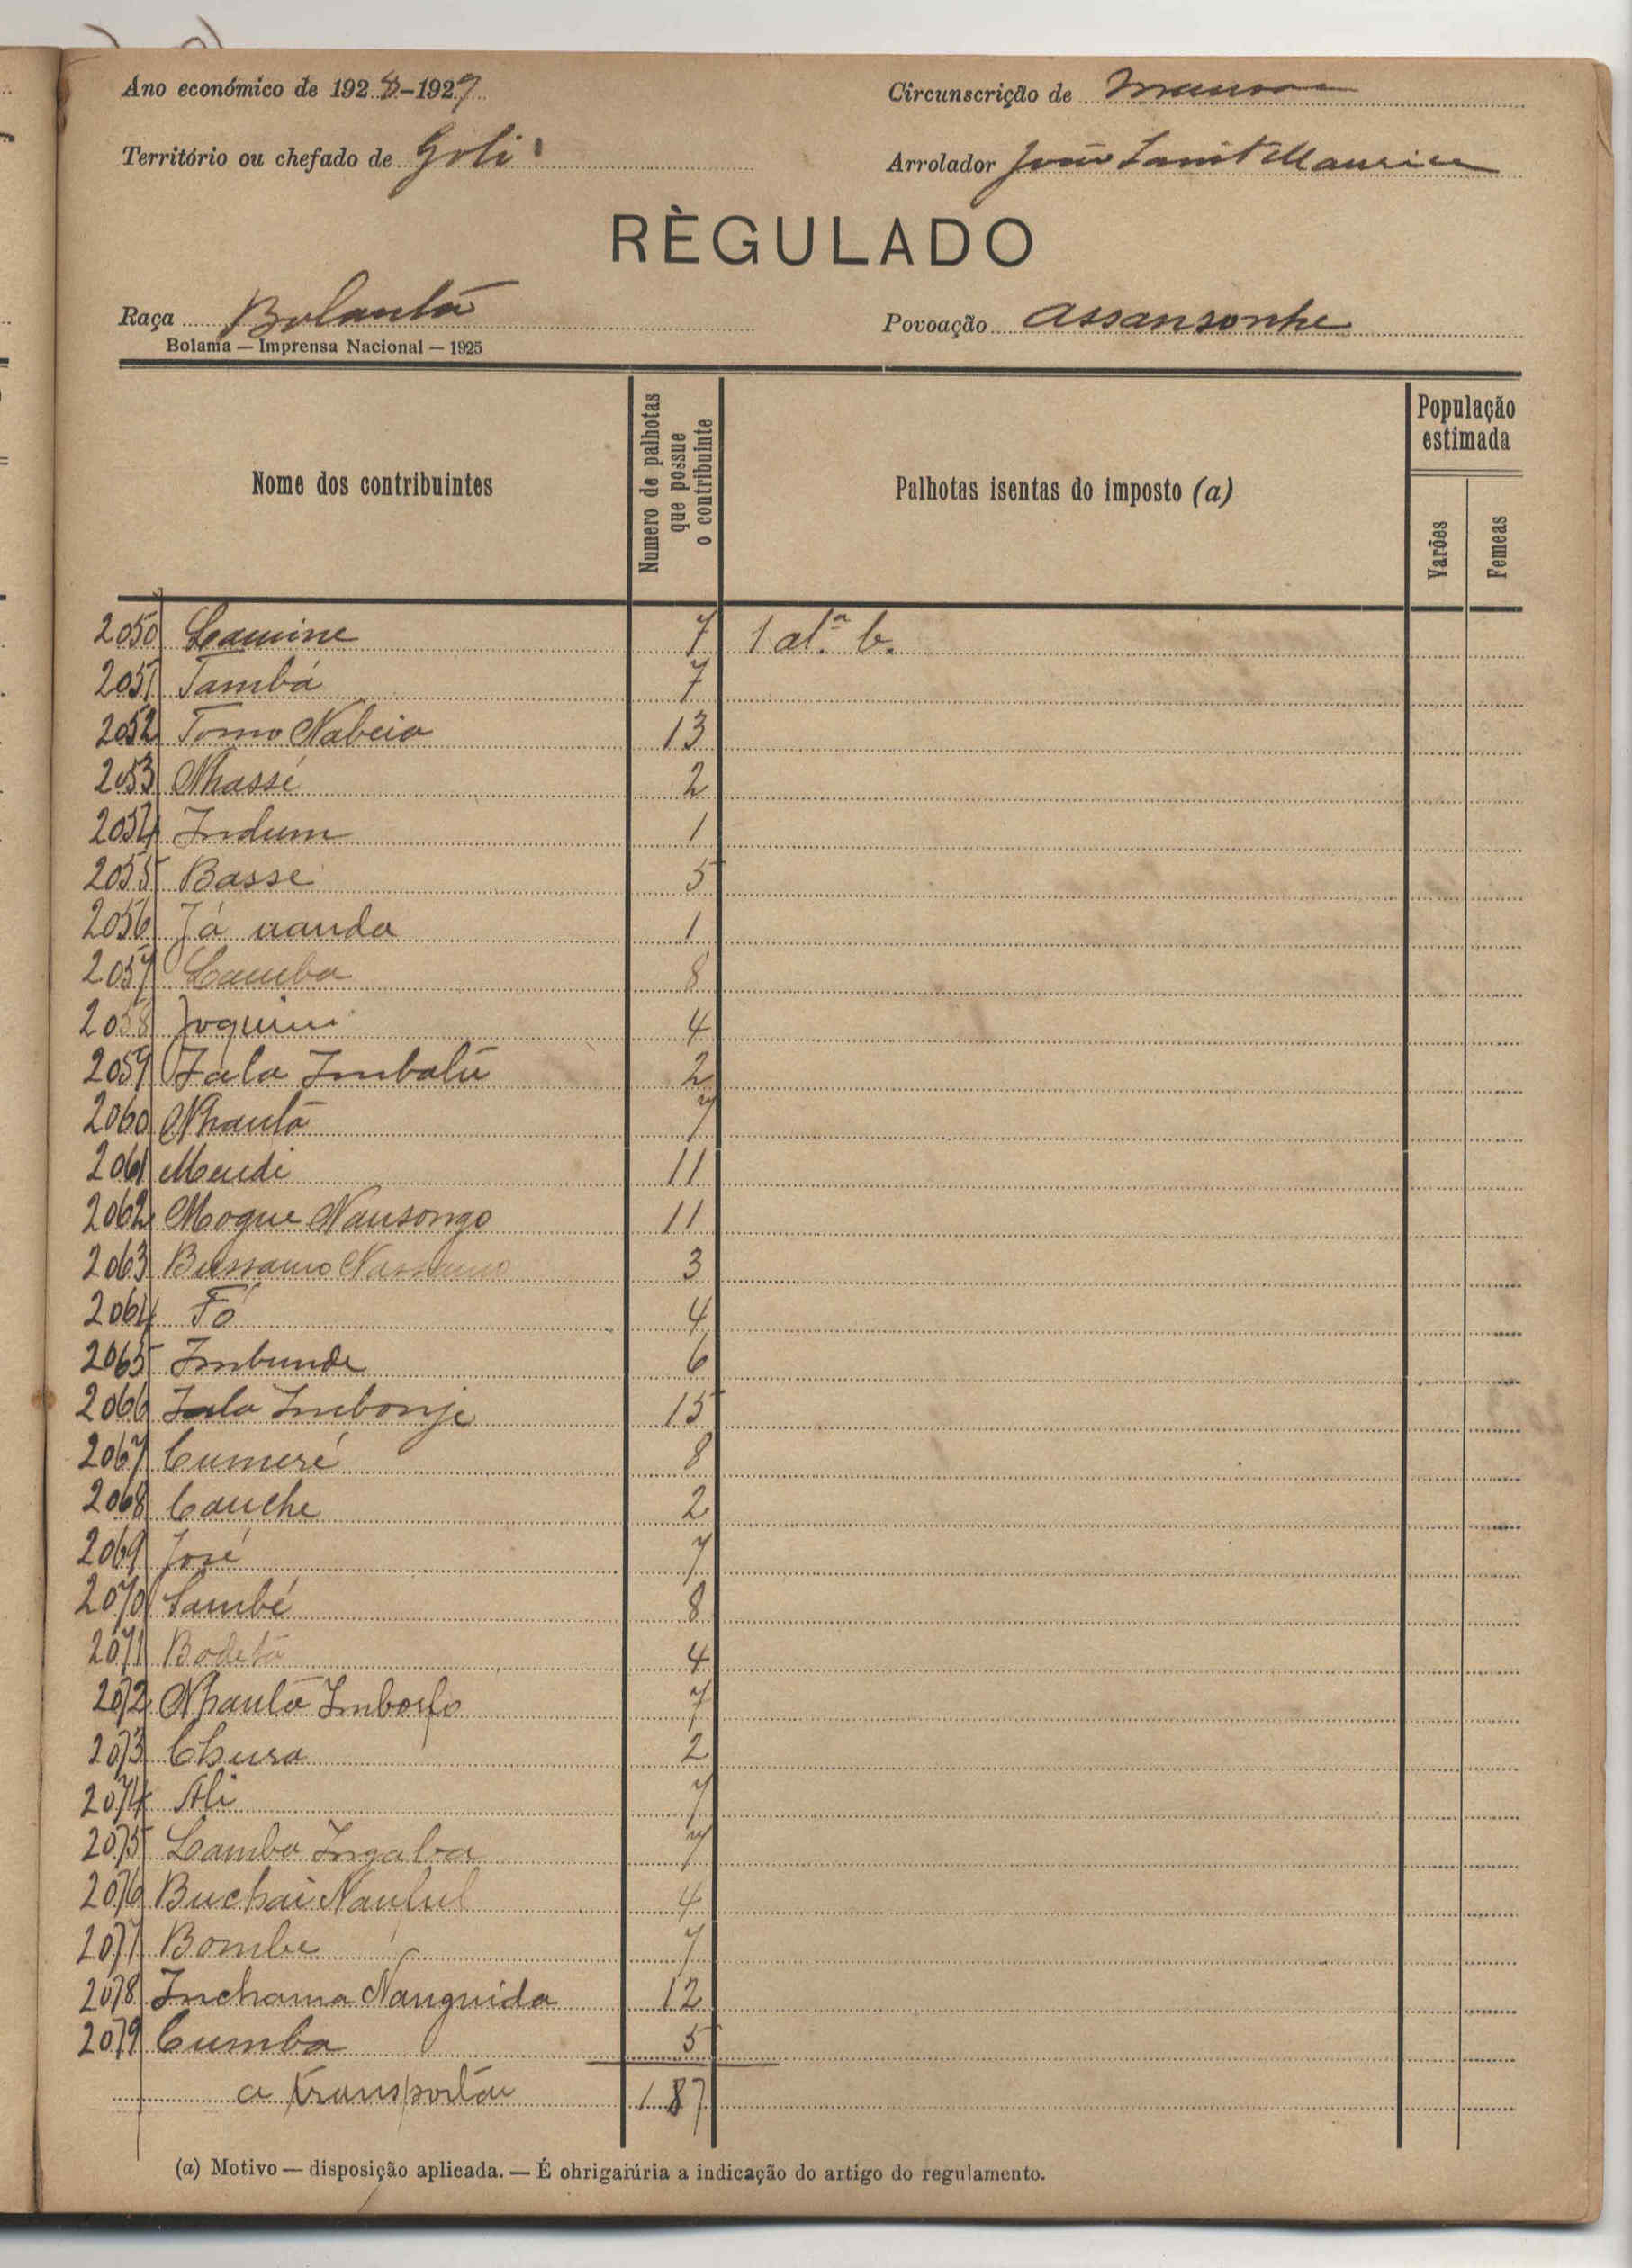 Ano económico de 1928-1929
Circunscrição de Mansoa
Território ou chefado de Goli
Arrolador João Maurice
RÈGULADO
Raça Balanta
Povoação Assansonhe
Bolama — Imprensa Nacional — 1925
Nome dos contribuintes
Numero de palhotas
que possue
o contribuinte
Palhotas isentas do imposto (a)
População
estimada
Varões
Femeas
2050 Lamine 7 1 al.ª b.
2051 Tambá 7
2052 Tomo Nabeia 13
2053 Nhassé 2
2054 Indum 1
2055 Basse 5
2056 Já uanda 1
2057 Lamba 8
2058 Joquim 4
2059 Iala Imbalú 2
2060 Nhantá 7
2061 Mendi 11
2062 Moque Nansongo 11
2063 Bussamo 3
2064 Fó 4
2065 Imbunde 6
2066 Iala Imbonje 15
2067 Cumeré 8
2068 Cauche 2
2069 José 7
2070 Sambé 8
2071 Bodetá 4
2072 Nhantá 7
2073 Chura 2
2074 Ali 7
2075 Lamba Ingaba 7
2076 Buchai 4
2077 Bombe 7
2078 Inchama Nanguida 12
2079 Cumba 5
a transportar 187
(a) Motivo — disposição aplicada. — É obrigatória a indicação do artigo do regulamento.